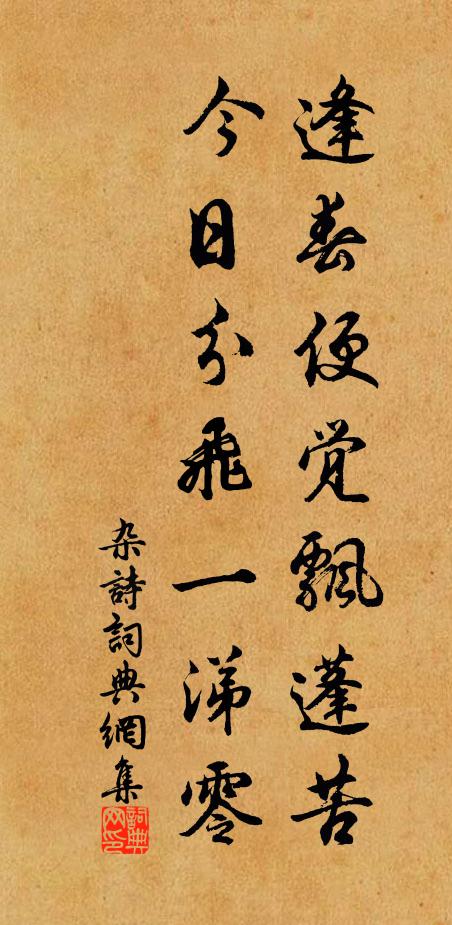 逢春便觉飘蓬苦
今日分飛一涕零
杂詩詞典網集
詞典网印